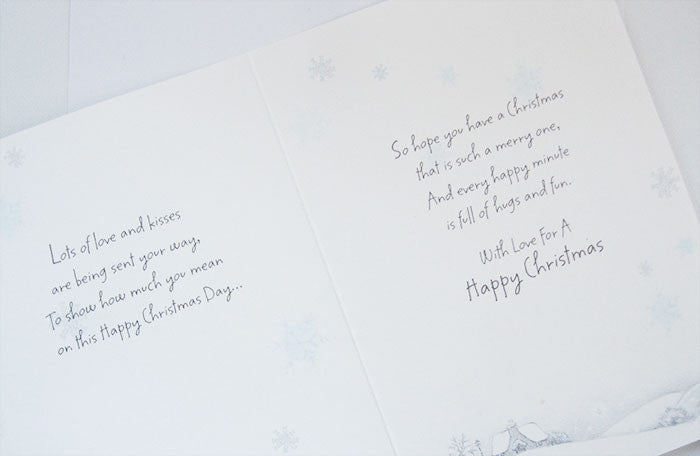 Lots of love and kisses
are being sent your way,
To show how much you mean
on this Happy Christmas Day...
So hope you have a Christmas
that is such a merry one,
And every happy minute
is full of hugs and fun.
With Love For A
Happy Christmas